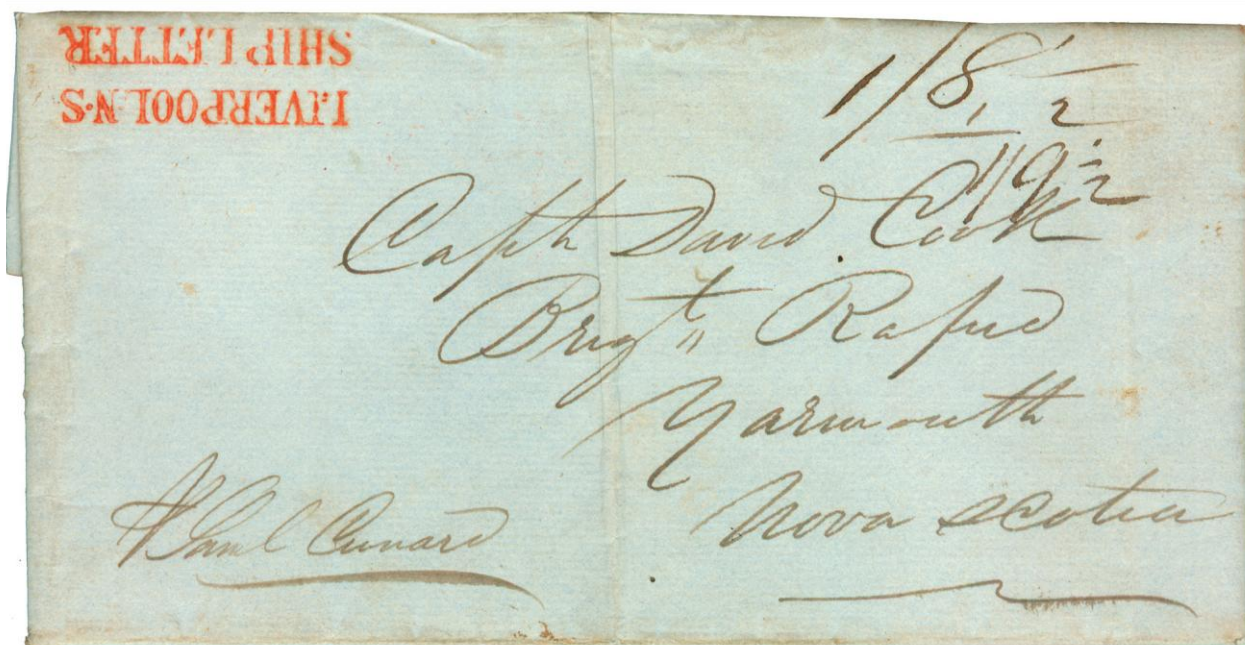 LIVERPOOL·N·S
SHIP LETTER
1/8 1/2
1/9 1/2
Capt David Cook
Brigt " Rapid
Yarmouth
Nova Scotia
Saml Cunard